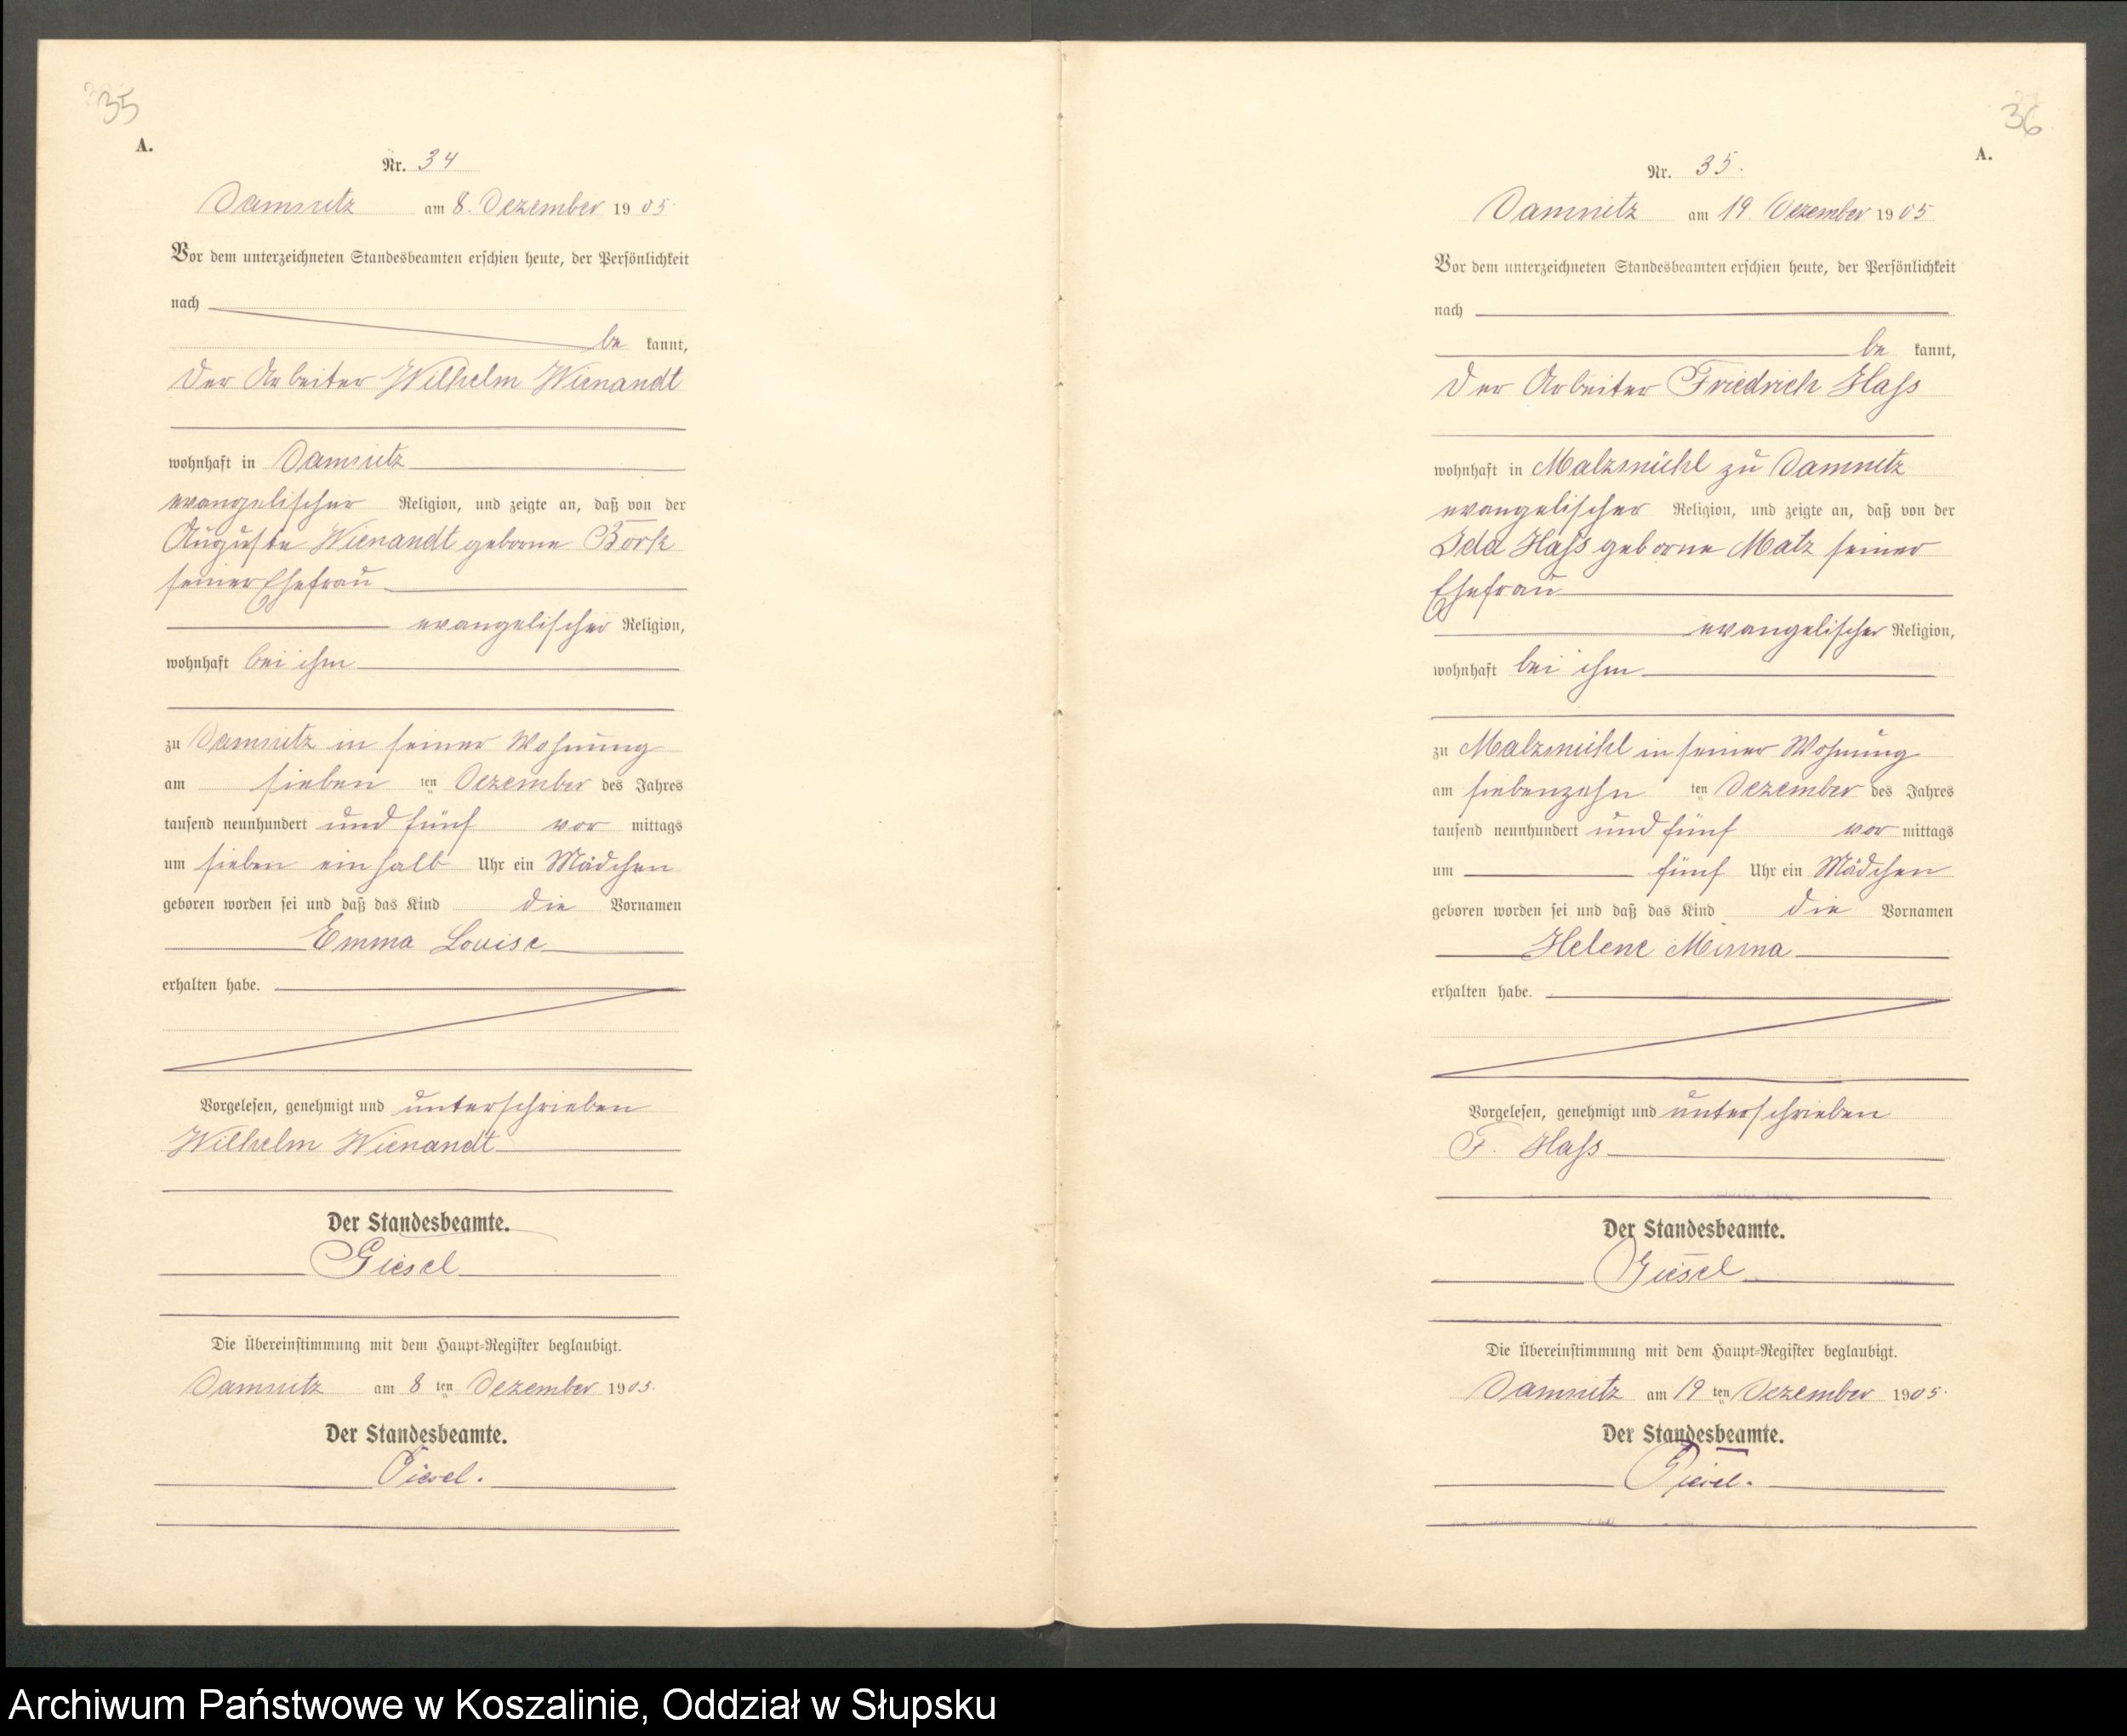 35
A.
Nr. 34
Damnitz am 8. Dezember 1905
Vor dem unterzeichneten Standesbeamten erschien heute, der Persönlichkeit
nach
be kannt,
der Arbeiter Wilhelm Wienandt
wohnhaft in Damnitz
evangelischer Religion, und zeigte an, daß von der
Auguste Wienandt geborne Bork
seiner Ehefrau
evangelischer Religion,
wohnhaft bei ihm
zu Damnitz in seiner Wohnung
am sieben ten Dezember des Jahres
tausend neunhundert und fünf vor mittags
um sieben ein halb Uhr ein Mädchen
geboren worden sei und daß das Kind die Vornamen
Emma Louise
erhalten habe.
Vorgelesen, genehmigt und unterschrieben
Wilhelm Wienandt
Der Standesbeamte.
Giesel
Die Übereinstimmung mit dem Haupt-Register beglaubigt.
Damnitz am 8 ten Dezember 1905.
Der Standesbeamte.
Giesel.
36
A.
Nr. 35.
Damnitz am 19 Dezember 1905
Vor dem unterzeichneten Standesbeamten erschien heute, der Persönlichkeit
nach
be kannt,
der Arbeiter Friedrich Hass
wohnhaft in Malzmühl zu Damnitz
evangelischer Religion, und zeigte an, daß von der
Ida Hass geborne Matz seiner
Ehefrau
evangelischer Religion,
wohnhaft bei ihm
zu Malzmühl in seiner Wohnung
am siebenzehn ten Dezember des Jahres
tausend neunhundert und fünf vor mittags
um fünf Uhr ein Mädchen
geboren worden sei und daß das Kind die Vornamen
Helene Minna
erhalten habe.
Vorgelesen, genehmigt und unterschrieben
F. Hass
Der Standesbeamte.
Giesel
Die Übereinstimmung mit dem Haupt-Register beglaubigt.
Damnitz am 19 ten Dezember 1905.
Der Standesbeamte.
Giesel.
Archiwum Państwowe w Koszalinie, Oddział w Słupsku